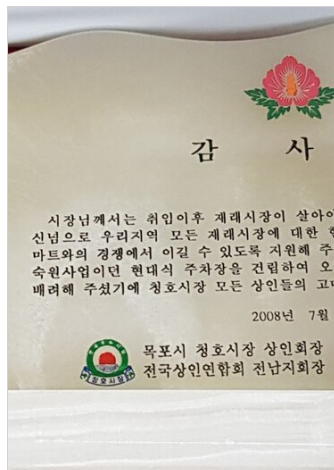 감 사
시장님께서는 취임이후 재래시장이 살아야
신념으로 우리지역 모든 재래시장에 대한
마트와의 경쟁에서 이길 수 있도록 지원해 주
숙원사업이던 현대식 주차장을 건립하여 오
배려해 주셨기에 청호시장 모든 상인들의 고마
2008년 7월
목포시 청호시장 상인회장
전국상인연합회 전남지회장
청호시장